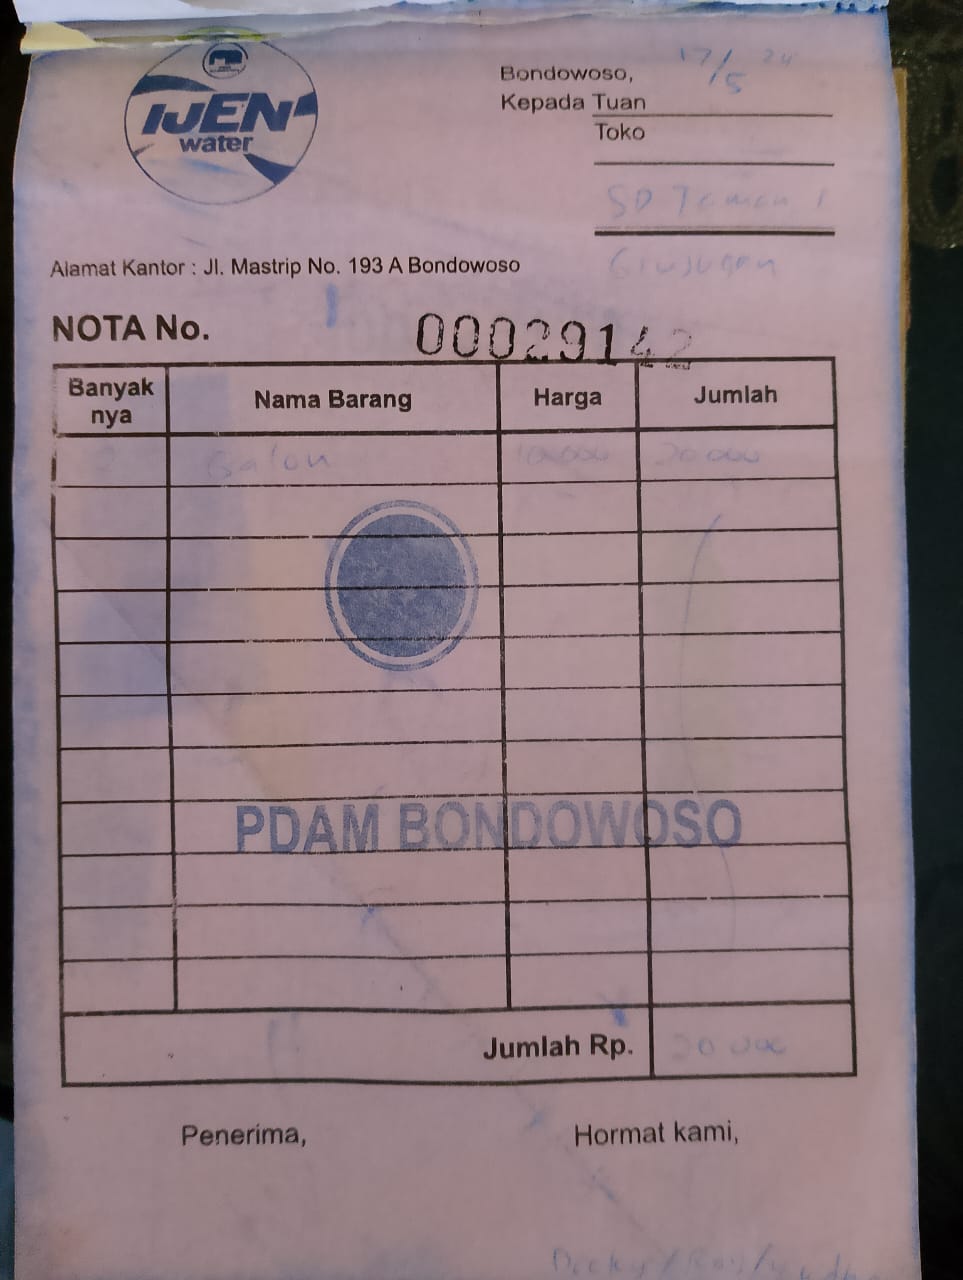 IJEN
water
Bondowoso, 17/5 24
Kepada Tuan
Toko
SD Taman 1
Grujugan
Alamat Kantor : Jl. Mastrip No. 193 A Bondowoso
NOTA No. 00029142
Banyak nya Nama Barang Harga Jumlah
2 Galon 10.000 20.000
PDAM BONDOWOSO
Jumlah Rp. 20.000
Penerima, Hormat kami,